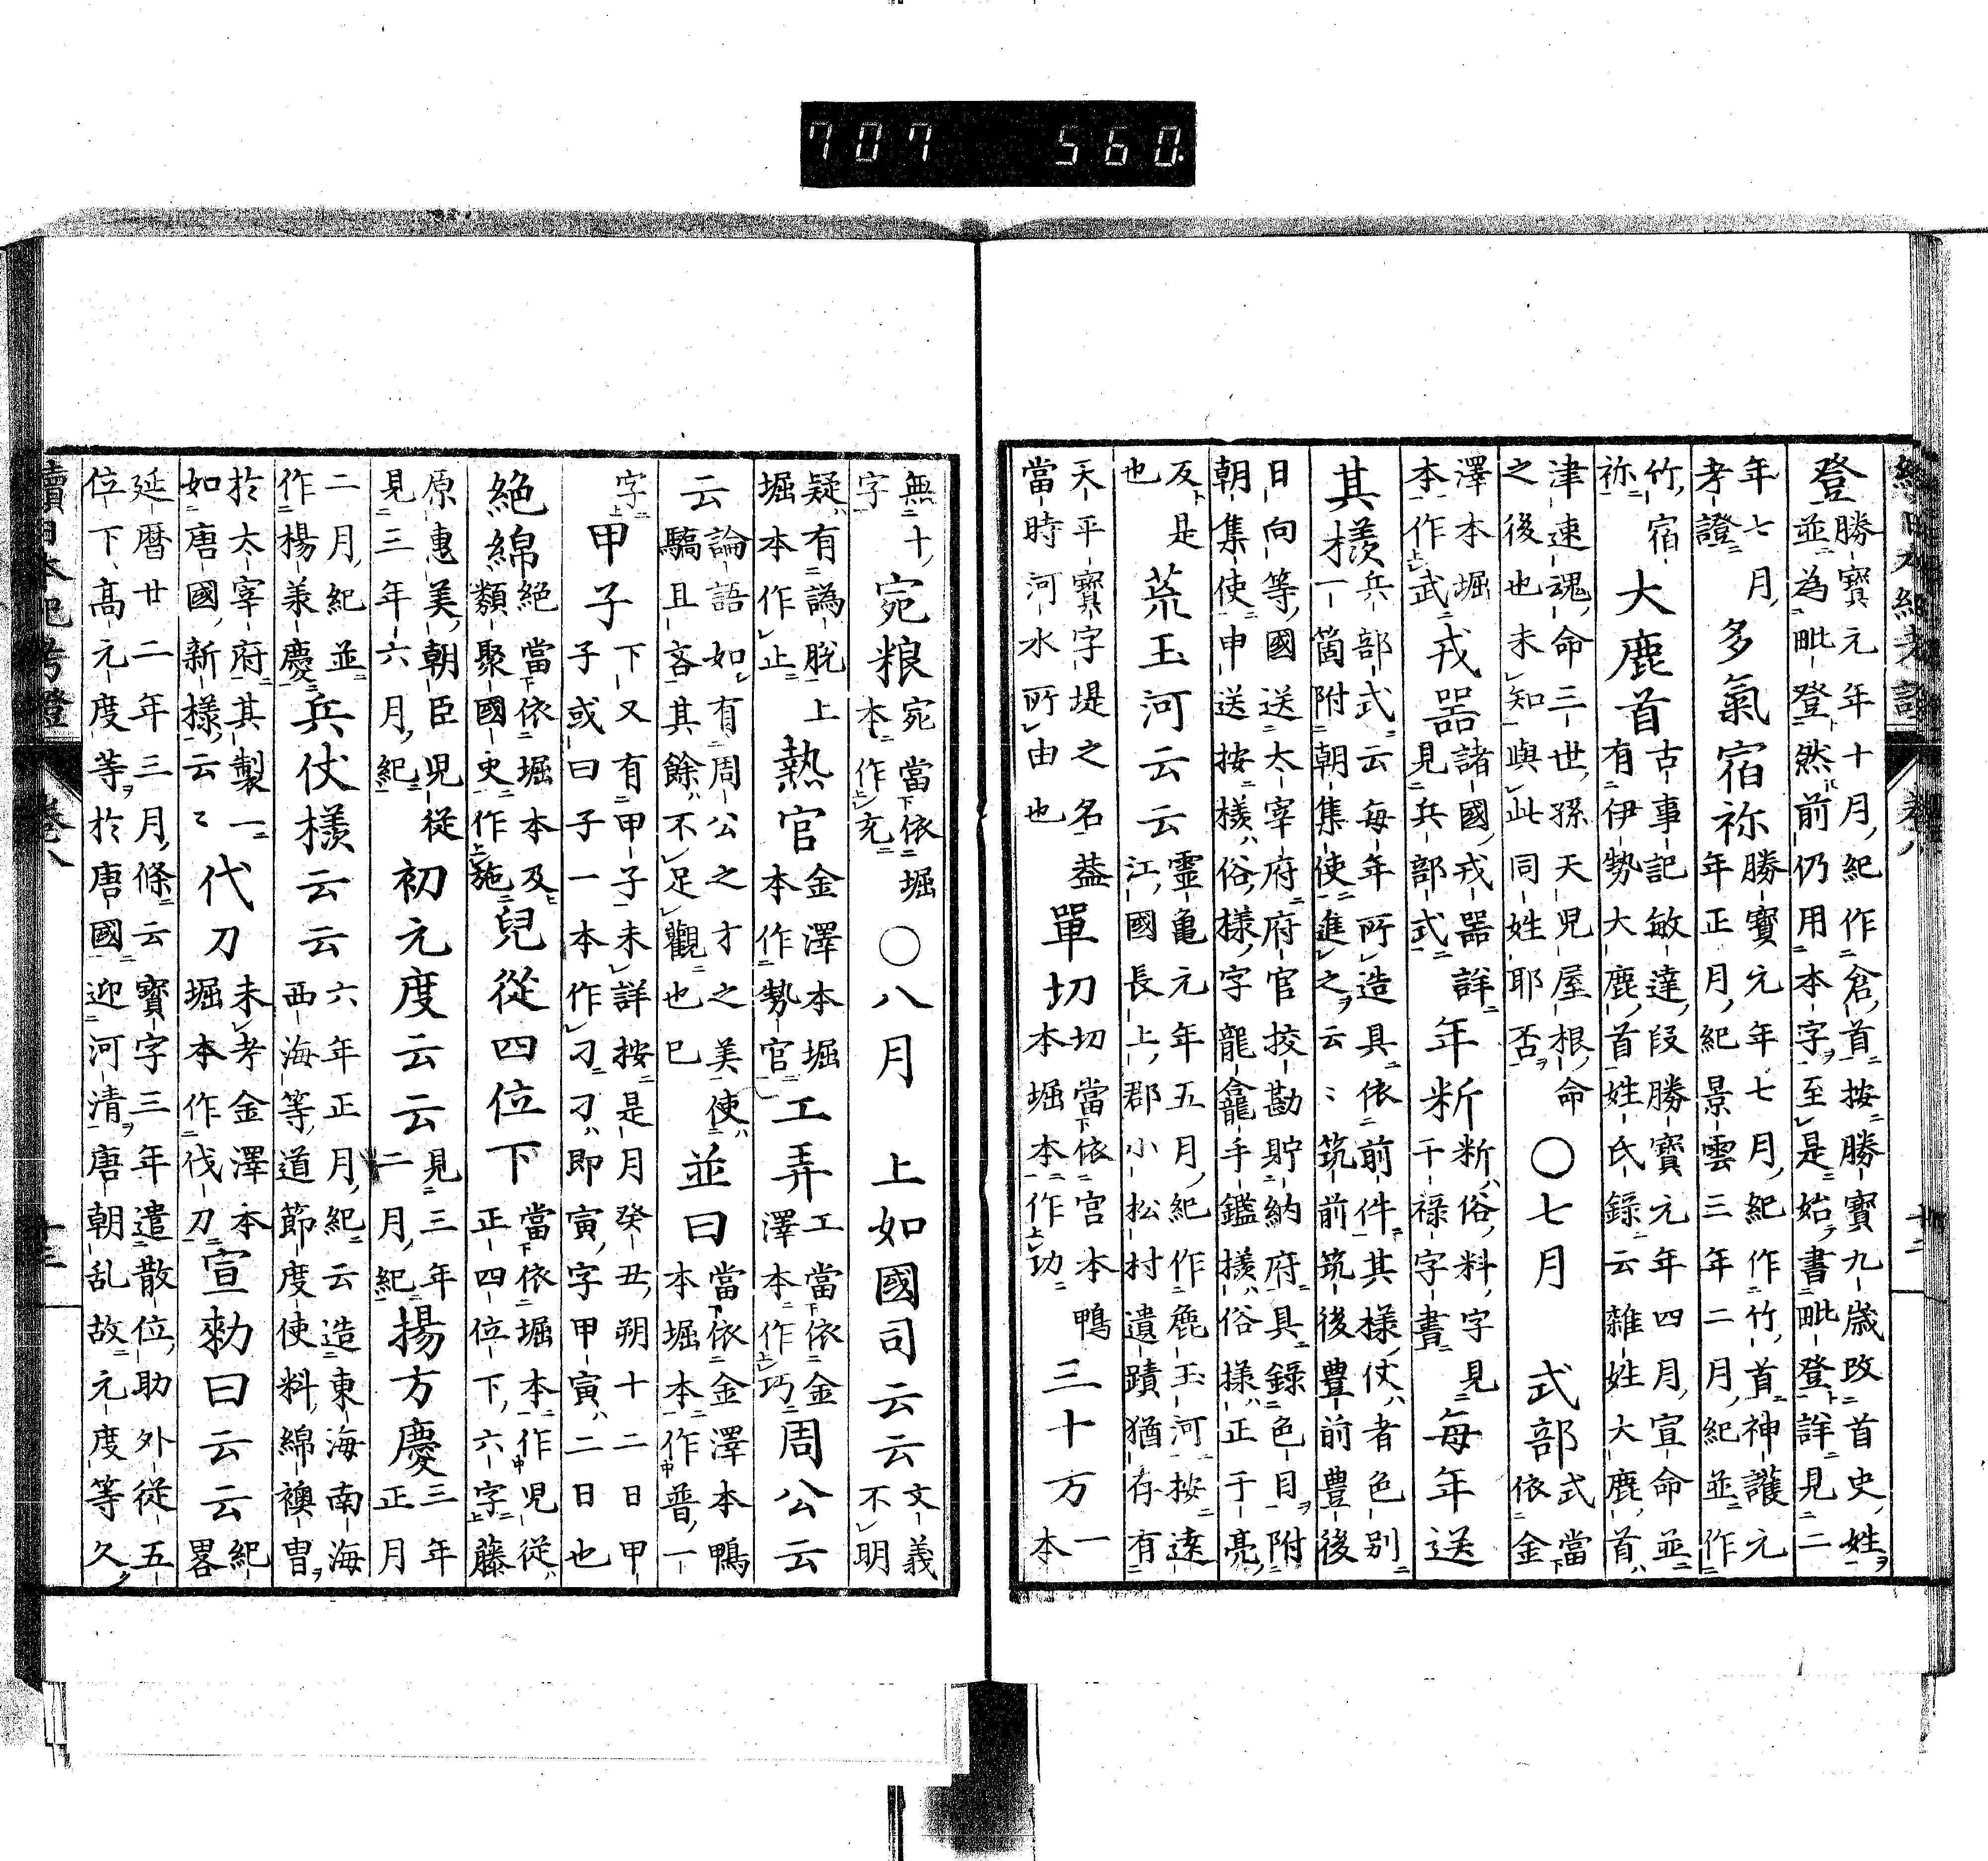 續日本紀考證 卷八 十二
登 勝寶元年十月紀作倉首按勝寶九歳改首史姓
並為毗登然前仍用本字至是始書毗登詳見二
年七月
考證 多氣宿祢 勝寶元年七月紀作竹首神護元
年正月紀景雲三年二月紀並作
竹宿
祢 大鹿首 古事記敏達段勝寶元年四月宣命並
有伊勢大鹿首姓氏録云雜姓大鹿首
津速魂命三世孫天児屋根命
之後也未知與此同姓耶否 ○七月 式部 式當
依金
澤本堀
本作武 戎器 諸國戎器詳
見兵部式 年断 断俗料字見
干禄字書 每年送
其様 兵部式云每年所造具依前件其樣仗者色別
一箇附朝集使進之云〻筑前筑後豊前豊後
日向等國送太宰府府官挍勘貯納府具錄色目附
朝集使申送按様俗樣字龍龕手鑑様俗樣正于亮
反是
也 荒玉河云云 靈亀元年五月紀作麁玉河按遠
江國長上郡小松村遺蹟猶存有
天平寶字堤之名葢
當時河水所由也 單切 切當依宮本鴨
本堀本作功 三十方 一
本
無十
字 宛粮 宛當依堀
本作充 ○八月 上如國司云云 文義
不明
疑有譌脱
堀本作止 上熱官 金澤本堀
本作勢官 工弄 工當依金
澤本作巧 周公云
云 論語如有周公之才之美使
驕且吝其餘不足觀也已 並曰 當依金澤本鴨
本堀本作普一
字 甲子 下又有甲子未詳按是月癸丑朔十二日甲
子或曰子一本作刁刁即寅字甲寅二日也
絶綿 絶當依堀本及
類聚國史作施 兒從四位下 當依堀本作児從
正四位下六字藤
原惠美朝臣児從
見三年六月紀 初元度云云 見三年
二月紀 揚方慶 三年
正月
二月紀並
作楊羕慶 兵仗様云云 六年正月紀云造東海南海
西海等道節度使料綿襖冑
於太宰府其製一
如唐國新樣云〻 代刀 未考金澤本
堀本作伐刀 宣勑曰云云 紀
畧
延暦廿二年三月條云寶字三年遣散位助外從五
位下高元度等於唐國迎河清唐朝乱故元度等久
續日本紀考證 卷八 十三